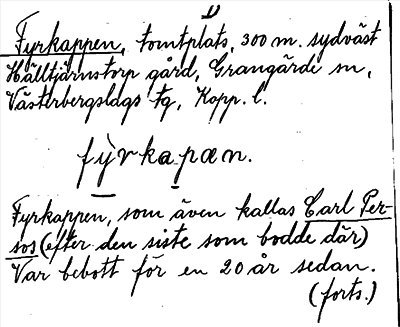 Fyrkappen, tomtplats, 300 m. sydväst
Hälltjärnstorp gård, Grangärde sn,
Västerbergslags tg, Kopp. l.
fỳrkapæn.
Fyrkappen, som även kallas Carl Per-
sos (efter den siste som bodde där)
Var bebott för en 20 år sedan.
(forts.)